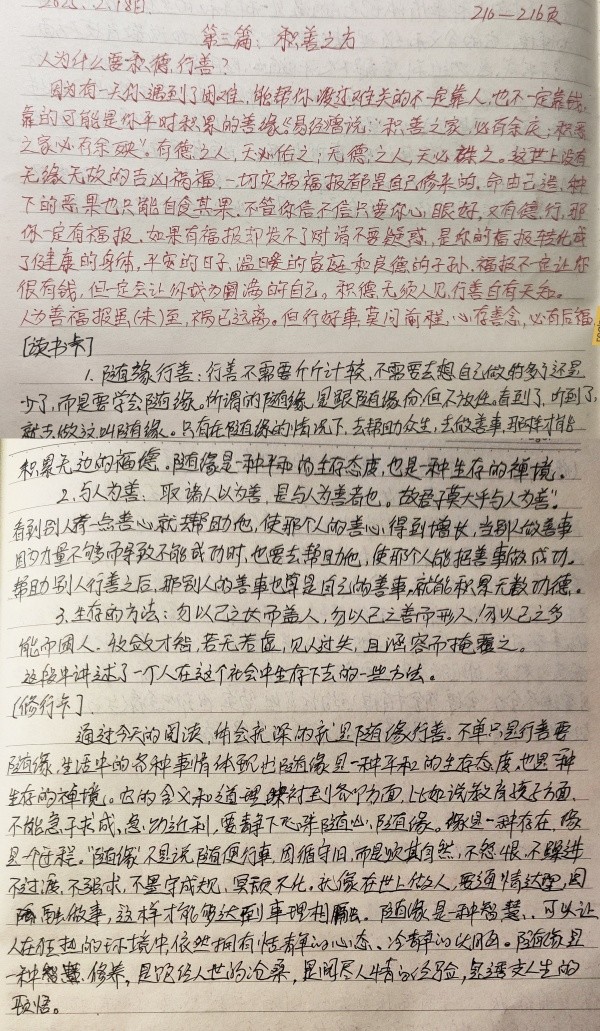 2025.2.18日. 210—216页
第三篇：积善之方
人为什么要积德行善？
因为有一天你遇到了困难，能帮你渡过难关的不一定靠人，也不一定靠钱，
靠的可能是你平时积累的善缘。《易经》曾说：“积善之家，必有余庆；积恶
之家必有余殃”。有德之人，天必佑之；无德之人，天必诛之。这世上没有
无缘无故的吉凶祸福，一切灾祸福报都是自己修来的，命由己造，种
下的恶果也只能自食其果。不管你信不信只要你心眼好，又有德行，那
你一定有福报。如果有福报却发不了财请不要疑惑，是你的福报转化成
了健康的身体，平安的日子，温暖的家庭和良德的子孙。福报不一定让你
很有钱，但一定会让你成为圆满的自己。积德无须人见，行善自有天知。
人为善福报虽(未)至，祸已远离。但行好事，莫问前程，心存善念，必有后福
[读书卡]
1. 随缘行善：行善不需要斤斤计较，不需要去想自己做的多了还是
少了，而是要学会随缘。所谓的随缘，是跟随缘份但不放任。看到了，听到了，
就去做这叫随缘。只有在随缘的情况下，去帮助众生，去做善事，那样才能
积累无边的福德。随缘是一种平和的生存态度，也是一种生存的禅境。
2. 与人为善：取诸人以为善，是与人为善者也。故君子莫大乎与人为善”。
看到别人有一点善心就去帮助他，使那个人的善心，得到增长，当别人做善事
因为力量不够而导致不能成功时，也要去帮助他，使那个人能把善事做成功。
帮助别人行善之后，那别人的善事也算是自己的善事，就能积累无数功德。
3. 生存的方法：勿以己之长而盖人，勿以己之善而形人，勿以己之多
能而困人。收敛才智，若无若虚，见人过失，且涵容而掩覆之。
这段中讲述了一个人在这个社会中生存下去的一些方法。
[修行卡]
通过今天的阅读，体会最深的就是随缘行善。不单只是行善要
随缘，生活中的各种事情体现出随缘是一种平和的生存态度，也是一种
生存的禅境。它的含义和道理映衬到各个方面，比如说教育孩子方面，
不能急于求成、急功近利，要静下心来随心，随缘。缘是一种存在，缘
是一个过程。“随缘”不是说随便行事，因循守旧，而是顺其自然，不怨恨，不躁进
不过度，不强求，不墨守成规，冥顽不化。就像在世上做人，要通情达理，圆
融做事，这样才能够达到事理相融。随缘是一种智慧，可以让
人在狂热的环境中依然拥有恬静的心态、冷静的头脑。随缘是
一种智慧修养，是饱经人世的沧桑，是阅尽人情的经验，是透支人生的
顿悟。